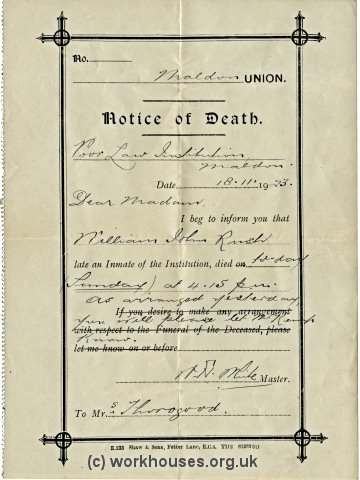 No.
Maldon UNION.
Notice of Death.
Poor Law Institution
Maldon.
Date 18.11.1923.
Dear Madam,
I beg to inform you that
William John
late an Inmate of the Institution, died on to-day
(Sunday) at 4.15 p.m.
As arranged yesterday
If you desire to make any arrangement
you will please let
with respect to the Funeral of the Deceased, please
know.
let me know on or before
Master.
To Mrs Thorogood.
E.233 Shaw & Sons, Fetter Lane, E.C.4.
(c) workhouses.org.uk